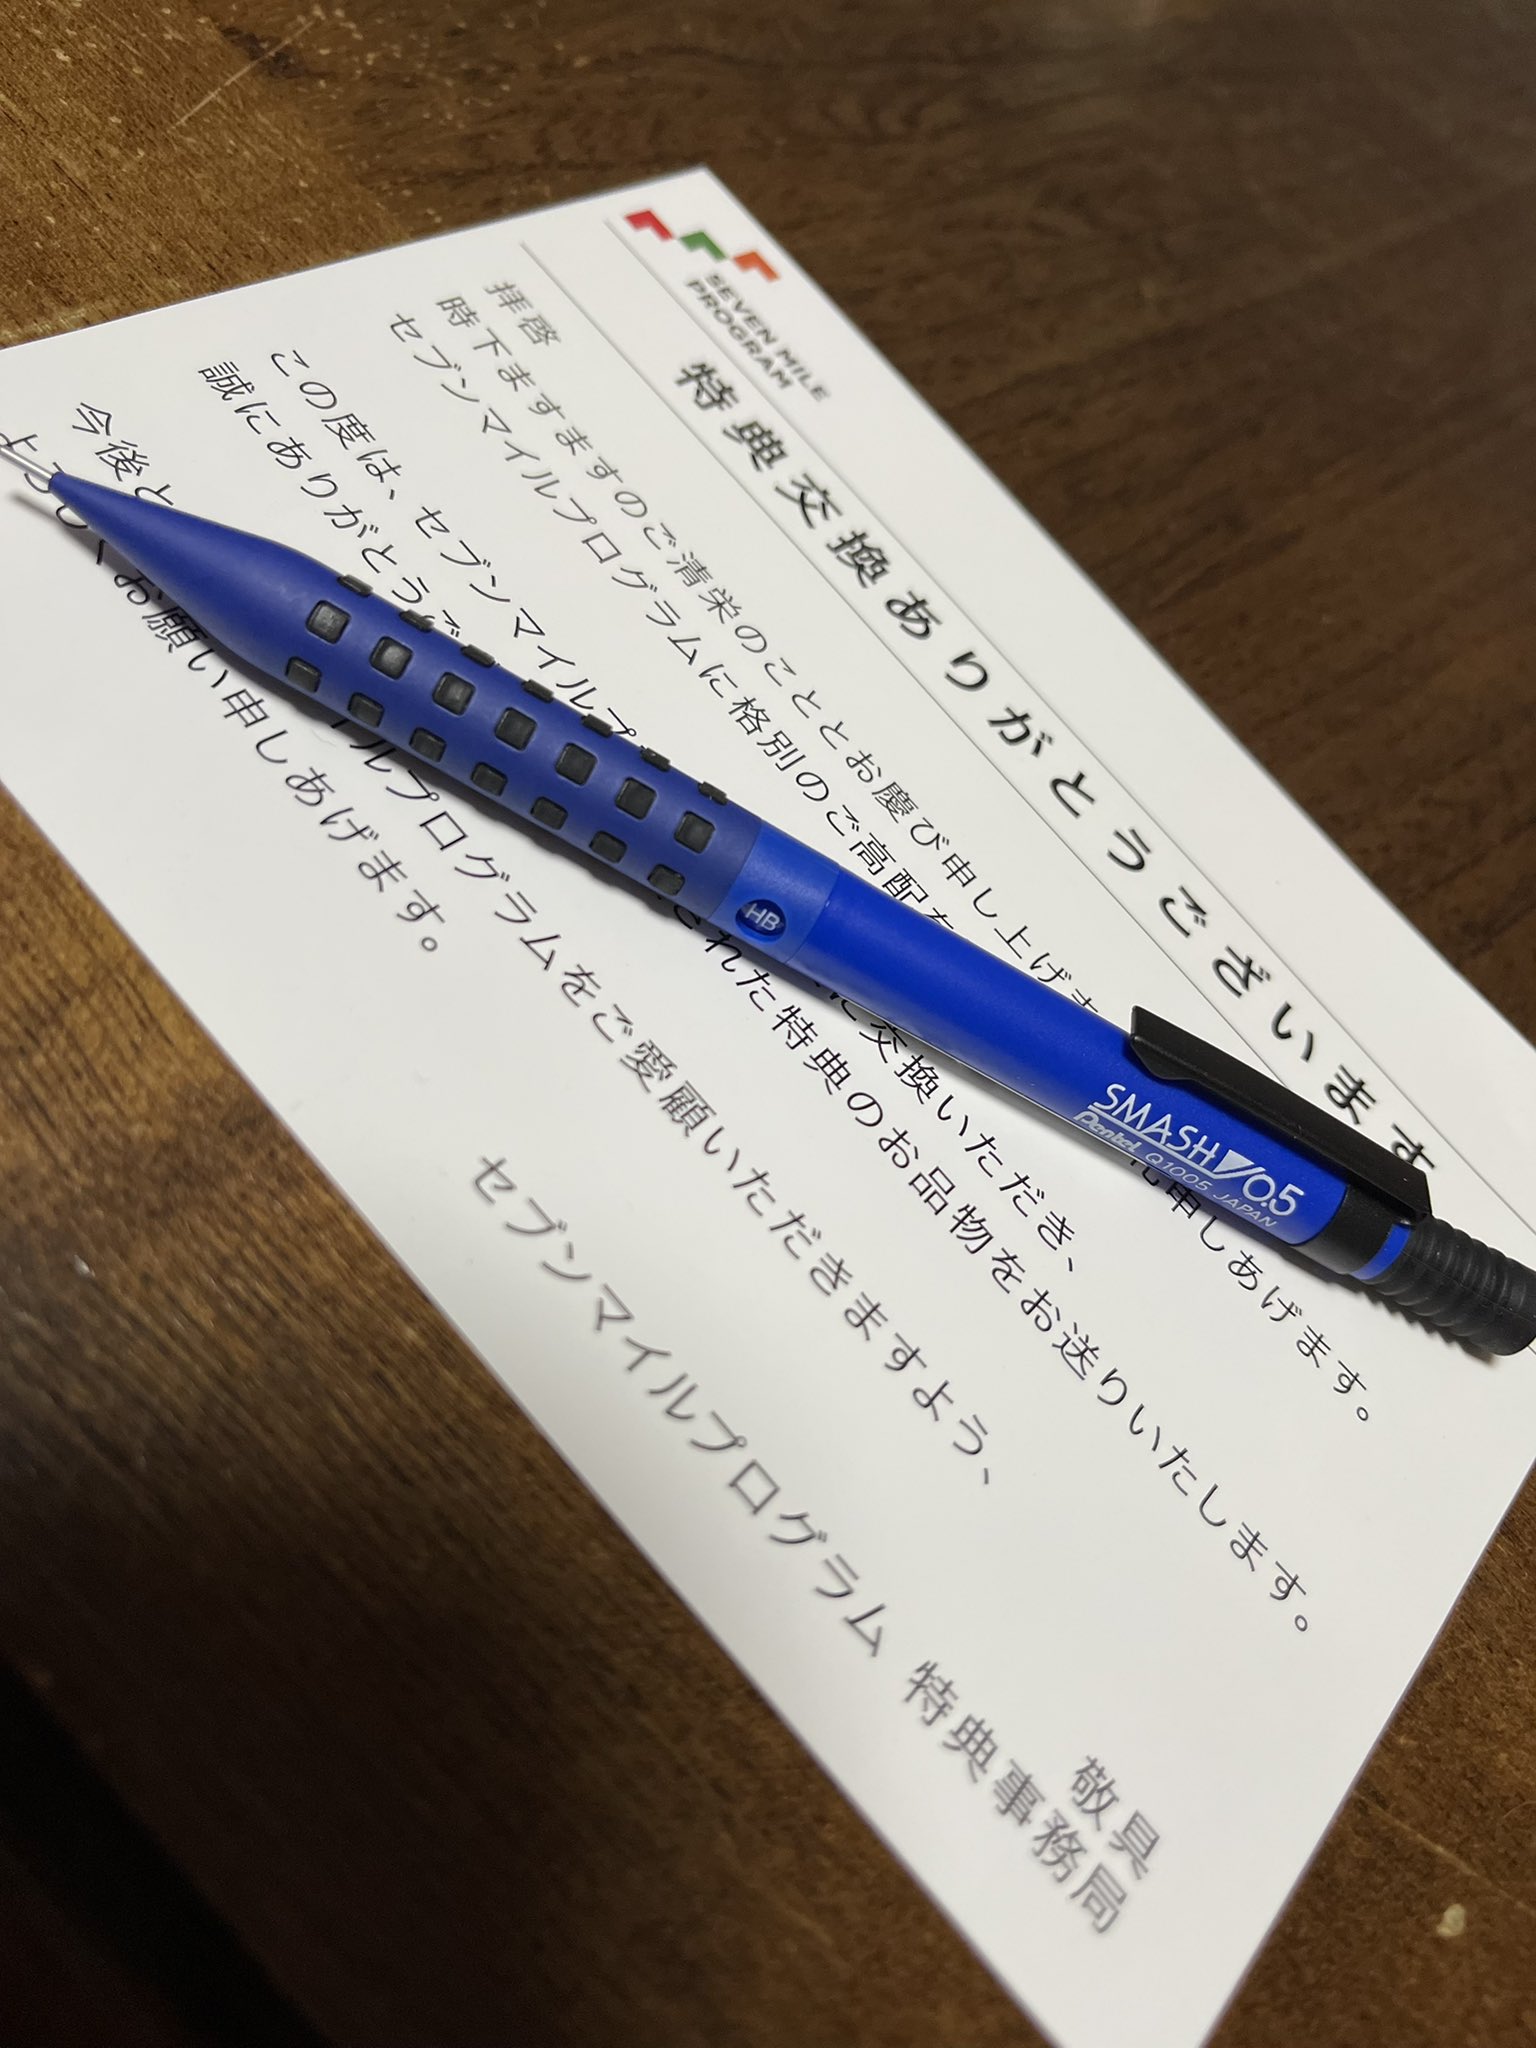 SEVEN MILE
PROGRAM
特典交換ありがとうございます
拝啓
時下ますますのご清栄のこととお慶び申し上げま
セブンマイルプログラムに格別のご高配を 申しあげます。
この度は、セブンマイルプ に交換いただき、
誠にありがとうご された特典のお品物をお送りいたします。
今後と イルプログラムをご愛顧いただきますよう、
よろしくお願い申しあげます。
敬具
セブンマイルプログラム 特典事務局
HB
SMASH 0.5
Pentel Q1005 JAPAN